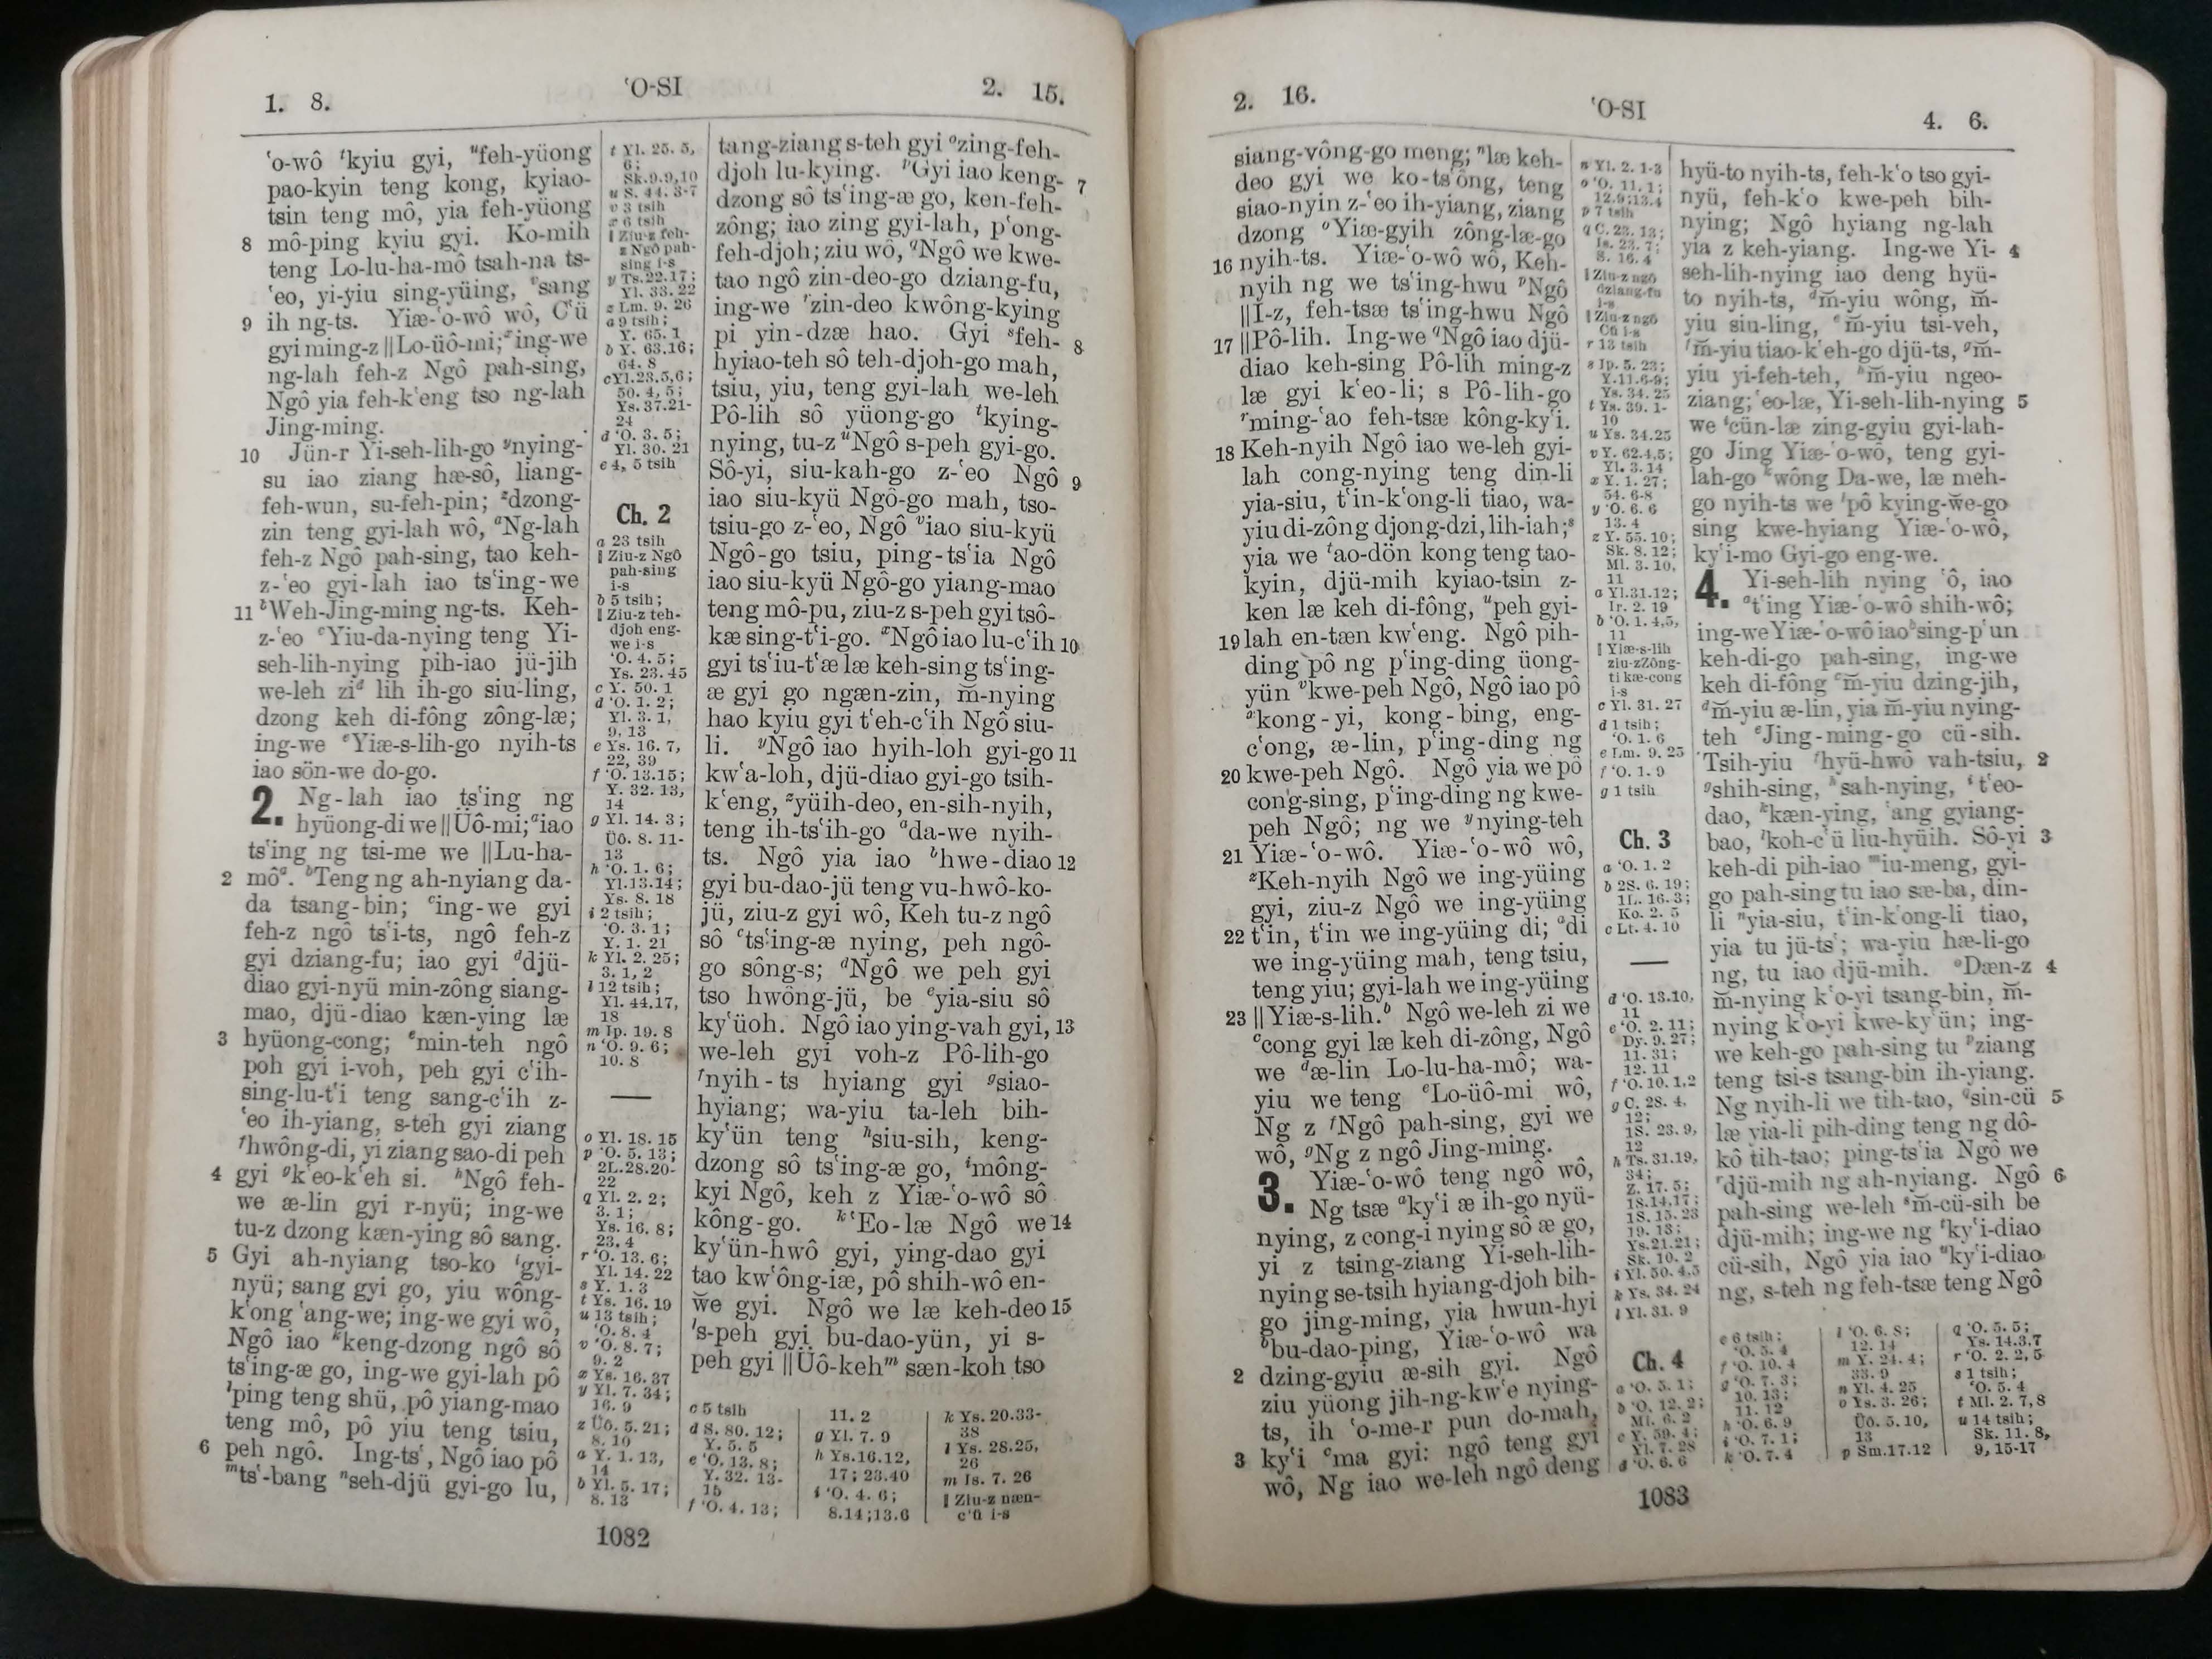 1. 8.
ʻO-SI
2. 15.
ʻo-wô ᵗkyiu gyi, ᵘfeh-yüong
pao-kyin teng kong, kyiao-
tsin teng mô, yia feh-yüong
8 mô-ping kyiu gyi. Ko-mih
teng Lo-lu-ha-mô tsah-na ts-
ʻeo, yi-yiu sing-yüing, ᵛsang
9 ih ng-ts. Yiæ-ʻo-wô wô, Cʻü
gyi ming-z ‖Lo-üô-mi; ˣing-we
ng-lah feh-z Ngô pah-sing,
Ngô yia feh-kʻeng tso ng-lah
Jing-ming.
10 Jün-r Yi-seh-lih-go ʸnying-
su iao ziang hæ-sô, liang-
feh-wun, su-feh-pin; ᶻdzong-
zin teng gyi-lah wô, ᵃNg-lah
feh-z Ngô pah-sing, tao keh-
z-ʻeo gyi-lah iao tsʻing-we
11 ᵇWeh-Jing-ming ng-ts. Keh-
z-ʻeo ᶜYiu-da-nying teng Yi-
seh-lih-nying pih-iao jü-jih
we-leh ziᵈ lih ih-go siu-ling,
dzong keh di-fông zông-læ;
ing-we ᵉYiæ-s-lih-go nyih-ts
iao sön-we do-go.
2. Ng-lah iao tsʻing ng
hyüong-di we ‖Üô-mi; ᵃiao
tsʻing ng tsi-me we ‖Lu-ha-
2 môᵃ. ᵇTeng ng ah-nyiang da-
da tsang-bin; ᶜing-we gyi
feh-z ngô tsʻi-ts, ngô feh-z
gyi dziang-fu; iao gyi ᵈdjü-
diao gyi-nyü min-zông siang-
mao, djü-diao kæn-ying læ
3 hyüong-cong; ᵉmin-teh ngô
poh gyi i-voh, peh gyi cʻih-
sing-lu-tʻi teng sang-cʻih z-
ʻeo ih-yiang, s-teh gyi ziang
ᶠhwông-di, yi ziang sao-di peh
4 gyi ᵍkʻeo-kʻeh si. ʰNgô feh-
we æ-lin gyi r-nyü; ing-we
tu-z dzong kæn-ying sô sang.
5 Gyi ah-nyiang tso-ko ⁱgyi-
nyü; sang gyi go, yiu wông-
kʻong ʻang-we; ing-we gyi wô,
Ngô iao ᵏkeng-dzong ngô sô
tsʻing-æ go, ing-we gyi-lah pô
ˡping teng shü, pô yiang-mao
teng mô, pô yiu teng tsiu,
6 peh ngô. Ing-tsʻ, Ngô iao pô
ᵐtsʻ-bang ⁿseh-djü gyi-go lu,
t Yl. 25. 5,
6;
Sk.9.9,10
u S. 44. 3-7
v 3 tsih
x 6 tsih
‖ Ziu-z feh-
z Ngô pah-
sing i-s
y Ts.22.17;
Yl. 33. 22
z Lm. 9. 26
a 9 tsih;
Y. 65. 1
b Y. 63.16;
64. 8
c Yl.23.5,6;
50. 4, 5;
Ys. 37.21-
24
d ʻO. 3. 5;
Yl. 30. 21
e 4, 5 tsih
Ch. 2
a 23 tsih
‖ Ziu-z Ngô
pah-sing
i-s
b 5 tsih;
‖ Ziu-z teh-
djoh eng-
we i-s
ʻO. 4. 5;
Ys. 23. 45
c Y. 50. 1
d ʻO. 1. 2;
Yl. 3. 1,
9, 13
e Ys. 16. 7,
22, 39
f ʻO. 13.15;
Y. 32. 13,
14
g Yl. 14. 3;
Üô. 8. 11-
13
h ʻO. 1. 6;
Yl.13.14;
Ys. 8. 18
i 2 tsih;
ʻO. 3. 1;
Y. 1. 21
k Yl. 2. 25;
3. 1, 2
l 12 tsih;
Yl. 44.17,
18
m Ip. 19. 8
n ʻO. 9. 6;
10. 8
o Yl. 18. 15
p ʻO. 5. 13;
2L.28.20-
22
q Yl. 2. 2;
3. 1;
Ys. 16. 8;
23. 4
r ʻO. 13. 6;
Yl. 14. 22
s Y. 1. 3
t Ys. 16. 19
u 13 tsih;
ʻO. 8. 4
v ʻO. 8. 7;
9. 2
x Ys. 16. 37
y Yl. 7. 34;
16. 9
z Üô. 5. 21;
8. 10
a Y. 1. 13,
14
b Yl. 5. 17;
8. 13
tang-ziang s-teh gyi ᵒzing-feh-
djoh lu-kying. ᵖGyi iao keng- 7
dzong sô tsʻing-æ go, ken-feh-
zông; iao zing gyi-lah, pʻong-
feh-djoh; ziu wô, ᑫNgô we kwe-
tao ngô zin-deo-go dziang-fu,
ing-we ʳzin-deo kwông-kying
pi yin-dzæ hao. Gyi ˢfeh- 8
hyiao-teh sô teh-djoh-go mah,
tsiu, yiu, teng gyi-lah we-leh
Pô-lih sô yüong-go ᵗkying-
nying, tu-z ᵘNgô s-peh gyi-go.
Sô-yi, siu-kah-go z-ʻeo Ngô 9
iao siu-kyü Ngô-go mah, tso-
tsiu-go z-ʻeo, Ngô ᵛiao siu-kyü
Ngô-go tsiu, ping-tsʻia Ngô
iao siu-kyü Ngô-go yiang-mao
teng mô-pu, ziu-z s-peh gyi tsô-
kæ sing-tʻi-go. ˣNgô iao lu-cʻih 10
gyi tsʻiu-tʻæ læ keh-sing tsʻing-
æ gyi go ngæn-zin, m̆-nying
hao kyiu gyi tʻeh-cʻih Ngô siu-
li. ʸNgô iao hyih-loh gyi-go 11
kwʻa-loh, djü-diao gyi-go tsih-
kʻeng, ᶻyüih-deo, en-sih-nyih,
teng ih-tsʻih-go ᵃda-we nyih-
ts. Ngô yia iao ᵇhwe-diao 12
gyi bu-dao-jü teng vu-hwô-ko-
jü, ziu-z gyi wô, Keh tu-z ngô
sô ᶜtsʻing-æ nying, peh ngô-
go sông-s; ᵈNgô we peh gyi
tso hwông-jü, be ᵉyia-siu sô
kyʻüoh. Ngô iao ying-vah gyi, 13
we-leh gyi voh-z Pô-lih-go
ᶠnyih-ts hyiang gyi ᵍsiao-
hyiang; wa-yiu ta-leh bih-
kyʻün teng ʰsiu-sih, keng-
dzong sô tsʻing-æ go, ⁱmông-
kyi Ngô, keh z Yiæ-ʻo-wô sô
kông-go. ᵏʻEo-læ Ngô we 14
kyʻün-hwô gyi, ying-dao gyi
tao kwʻông-iæ, pô shih-wô en-
w̆e gyi. Ngô we læ keh-deo 15
ˡs-peh gyi bu-dao-yün, yi s-
peh gyi ‖Üô-kehᵐ sæn-koh tso
c 5 tsih
d S. 80. 12;
Y. 5. 5
e ʻO. 13. 8;
Y. 32. 13-
15
f ʻO. 4. 13;
11. 2
g Yl. 7. 9
h Ys.16.12,
17; 23.40
i ʻO. 4. 6;
8.14;13.6
k Ys. 20.33-
38
l Ys. 28.25,
26
m Is. 7. 26
‖ Ziu-z næn-
cʻü i-s
1082
2. 16.
ʻO-SI
4. 6.
siang-vông-go meng; ⁿlæ keh-
deo gyi we ko-tsʻông, teng
siao-nyin z-ʻeo ih-yiang, ziang
dzong ᵒYiæ-gyih zông-læ-go
16 nyih-ts. Yiæ-ʻo-wô wô, Keh-
nyih ng we tsʻing-hwu ᵖNgô
‖I-z, feh-tsæ tsʻing-hwu Ngô
17 ‖Pô-lih. Ing-we ᑫNgô iao djü-
diao keh-sing Pô-lih ming-z
læ gyi kʻeo-li; s Pô-lih-go
ʳming-ʻao feh-tsæ kông-kyʻi.
18 Keh-nyih Ngô iao we-leh gyi-
lah cong-nying teng din-li
yia-siu, tʻin-kʻong-li tiao, wa-
yiu di-zông djong-dzi, lih-iah;ˢ
yia we ᵗao-dön kong teng tao-
kyin, djü-mih kyiao-tsin z-
ken læ keh di-fông, ᵘpeh gyi-
19 lah en-tæn kwʻeng. Ngô pih-
ding pô ng pʻing-ding üong-
yün ᵛkwe-peh Ngô, Ngô iao pô
ˣkong-yi, kong-bing, eng-
cʻong, æ-lin, pʻing-ding ng
20 kwe-peh Ngô. Ngô yia we pô
cong-sing, pʻing-ding ng kwe-
peh Ngô; ng we ʸnying-teh
21 Yiæ-ʻo-wô. Yiæ-ʻo-wô wô,
ᶻKeh-nyih Ngô we ing-yüing
gyi, ziu-z Ngô we ing-yüing
22 tʻin, tʻin we ing-yüing di; ᵃdi
we ing-yüing mah, teng tsiu,
teng yiu; gyi-lah we ing-yüing
23 ‖Yiæ-s-lih.ᵇ Ngô we-leh zi we
ᶜcong gyi læ keh di-zông, Ngô
we ᵈæ-lin Lo-lu-ha-mô; wa-
yiu we teng ᵉLo-üô-mi wô,
Ng z ᶠNgô pah-sing, gyi we
wô, ᵍNg z ngô Jing-ming.
3. Yiæ-ʻo-wô teng ngô wô,
Ng tsæ ᵃkyʻi æ ih-go nyü-
nying, z cong-i nying sô æ go,
yi z tsing-ziang Yi-seh-lih-
nying se-tsih hyiang-djoh bih-
go jing-ming, yia hwun-hyi
ᵇbu-dao-ping, Yiæ-ʻo-wô wa
2 dzing-gyiu æ-sih gyi. Ngô
ziu yüong jih-ng-kwʻe nying-
ts, ih ʻo-me-r pun do-mah,
3 kyʻi ᶜma gyi: ngô teng gyi
wô, Ng iao we-leh ngô deng
n Yl. 2. 1-3
o ʻO. 11. 1;
12.9;13.4
p 7 tsih
q C. 23. 13;
Is. 23. 7;
S. 16. 4
‖ Ziu-z ngô
dziang-fu
i-s
‖ Ziu-z ngô
Cü i-s
r 13 tsih
s Ip. 5. 23;
Y.11.6-9;
Ys. 34. 25
t Ys. 39. 1-
10
u Ys. 34.25
v Y. 62.4,5;
Yl. 3. 14
x Y. 1. 27;
54. 6-8
y ʻO. 6. 6
13. 4
z Y. 55. 10;
Sk. 8. 12;
Ml. 3. 10,
11
a Yl.31.12;
Ir. 2. 19
b ʻO. 1. 4,5,
11
‖ Yiæ-s-lih
ziu-z Zông-
ti kæ-cong
i-s
c Yl. 31. 27
d 1 tsih;
ʻO. 1. 6
e Lm. 9. 25
f ʻO. 1. 9
g 1 tsih
Ch. 3
a ʻO. 1. 2
b 2S. 6. 19;
1L. 16. 3;
Ko. 2. 5
c Lt. 4. 10
d ʻO. 13.10,
11
e ʻO. 2. 11;
Dy. 9. 27;
11. 31;
12. 11
f ʻO. 10. 1.2
g C. 28. 4,
12;
1S. 23. 9,
12
h Ts. 31.19,
34;
Z. 17. 5;
1S.14,17;
1S. 15. 23
19. 13;
Ys.21.21;
Sk. 10. 2
i Yl. 50. 4,5
k Ys. 34. 24
l Yl. 31. 9
Ch. 4
a ʻO. 5. 1;
b ʻO. 12. 2;
Mi. 6. 2
c Y. 59. 4;
Yl. 7. 28
d ʻO. 6. 6
hyü-to nyih-ts, feh-kʻo tso gyi-
nyü, feh-kʻo kwe-peh bih-
nying; Ngô hyiang ng-lah
yia z keh-yiang. Ing-we Yi- 4
seh-lih-nying iao deng hyü-
to nyih-ts, ᵈm̆-yiu wông, m̆-
yiu siu-ling, ᵉm̆-yiu tsi-veh,
ᶠm̆-yiu tiao-kʻeh-go djü-ts, ᵍm̆-
yiu yi-feh-teh, ʰm̆-yiu ngeo-
ziang; ʻeo-læ, Yi-seh-lih-nying 5
we ⁱcün-læ zing-gyiu gyi-lah-
go Jing Yiæ-ʻo-wô, teng gyi-
lah-go ᵏwông Da-we, læ meh-
go nyih-ts we ˡpô kying-w̆e-go
sing kwe-hyiang Yiæ-ʻo-wô,
kyʻi-mo Gyi-go eng-we.
4. Yi-seh-lih nying ʻô, iao
ᵃtʻing Yiæ-ʻo-wô shih-wô;
ing-we Yiæ-ʻo-wô iao ᵇsing-pʻun
keh-di-go pah-sing, ing-we
keh di-fông ᶜm̆-yiu dzing-jih,
ᵈm̆-yiu æ-lin, yia m̆-yiu nying-
teh ᵉJing-ming-go cü-sih.
Tsih-yiu ᶠhyü-hwô vah-tsiu, 2
ᵍshih-sing, ʰsah-nying, ⁱtʻeo-
dao, ᵏkæn-ying, ʻang gyiang-
bao, ˡkoh-cʻü liu-hyüih. Sô-yi 3
keh-di pih-iao ᵐiu-meng, gyi-
go pah-sing tu iao sæ-ba, din-
li ⁿyia-siu, tʻin-kʻong-li tiao,
yia tu jü-tsʻ; wa-yiu hæ-li-go
ng, tu iao djü-mih. ᵒDæn-z 4
m̆-nying kʻo-yi tsang-bin, m̆-
nying kʻo-yi kwe-kyʻün; ing-
we keh-go pah-sing tu ᵖziang
teng tsi-s tsang-bin ih-yiang.
Ng nyih-li we tih-tao, ᑫsin-cü 5
læ yia-li pih-ding teng ng dô-
kô tih-tao; ping-tsʻia Ngô we
ʳdjü-mih ng ah-nyiang. Ngô 6
pah-sing we-leh ˢm̆-cü-sih be
djü-mih; ing-we ng ᵗkyʻi-diao
cü-sih, Ngô yia iao ᵘkyʻi-diao
ng, s-teh ng feh-tsæ teng Ngô
e 6 tsih;
ʻO. 5. 4
f ʻO. 10. 4
g ʻO. 7. 3;
10. 13;
11. 12
h ʻO. 6. 9
i ʻO. 7. 1;
k ʻO. 7. 4
l ʻO. 6. 8;
12. 14
m Y. 24. 4;
33. 9
n Yl. 4. 25
o Ys. 3. 26;
Üô. 5. 10,
13
p Sm.17.12
q ʻO. 5. 5;
Ys. 14.3.7
r ʻO. 2. 2, 5
s 1 tsih;
ʻO. 5. 4
t Ml. 2. 7, 8
u 14 tsih;
Sk. 11. 8,
9, 15-17
1083